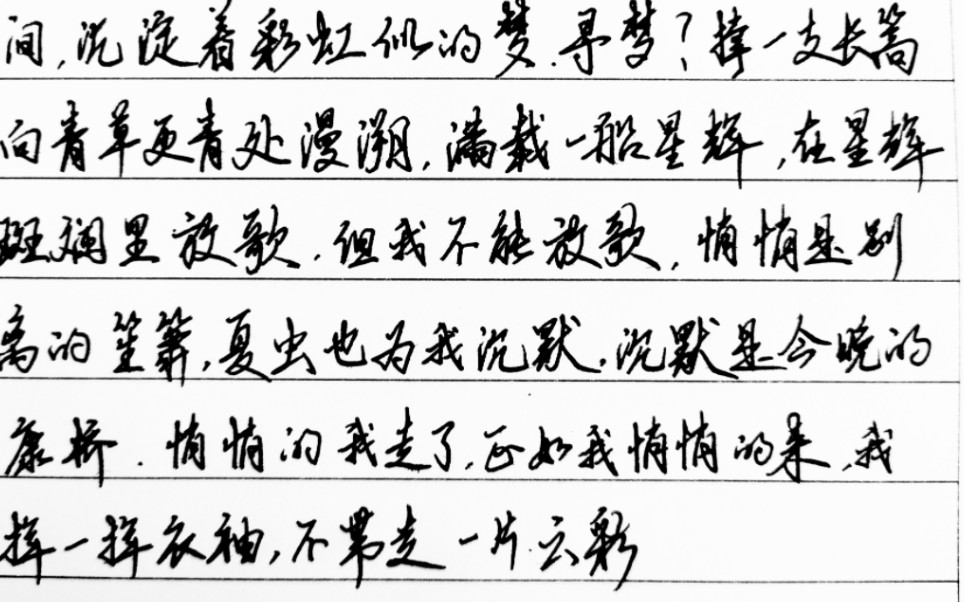 间,沉淀着彩虹似的梦.寻梦?撑一支长篙
向青草更青处漫溯,满载一船星辉,在星辉
斑斓里放歌.但我不能放歌,悄悄是别
离的笙箫,夏虫也为我沉默.沉默是今晚的
康桥.悄悄的我走了,正如我悄悄的来,我
挥一挥衣袖,不带走一片云彩